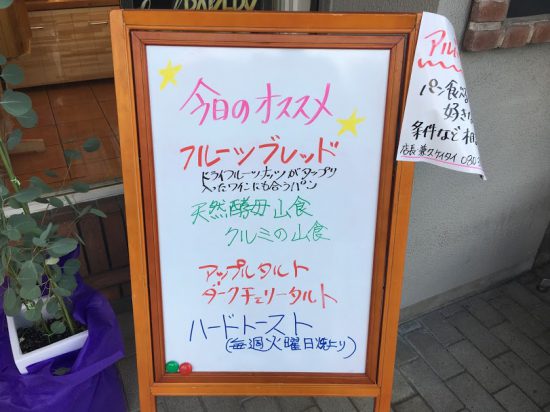 今日のオススメ
フルーツブレッド
ドライフルーツナッツがタップリ
入ったワインにも合うパン
天然酵母山食
クルミの山食
アップルタルト
ダークチェリータルト
ハードトースト
(毎週火曜日焼より)
アル
パン食べ
好き
条件など相
店長兼久ケイタイ 080